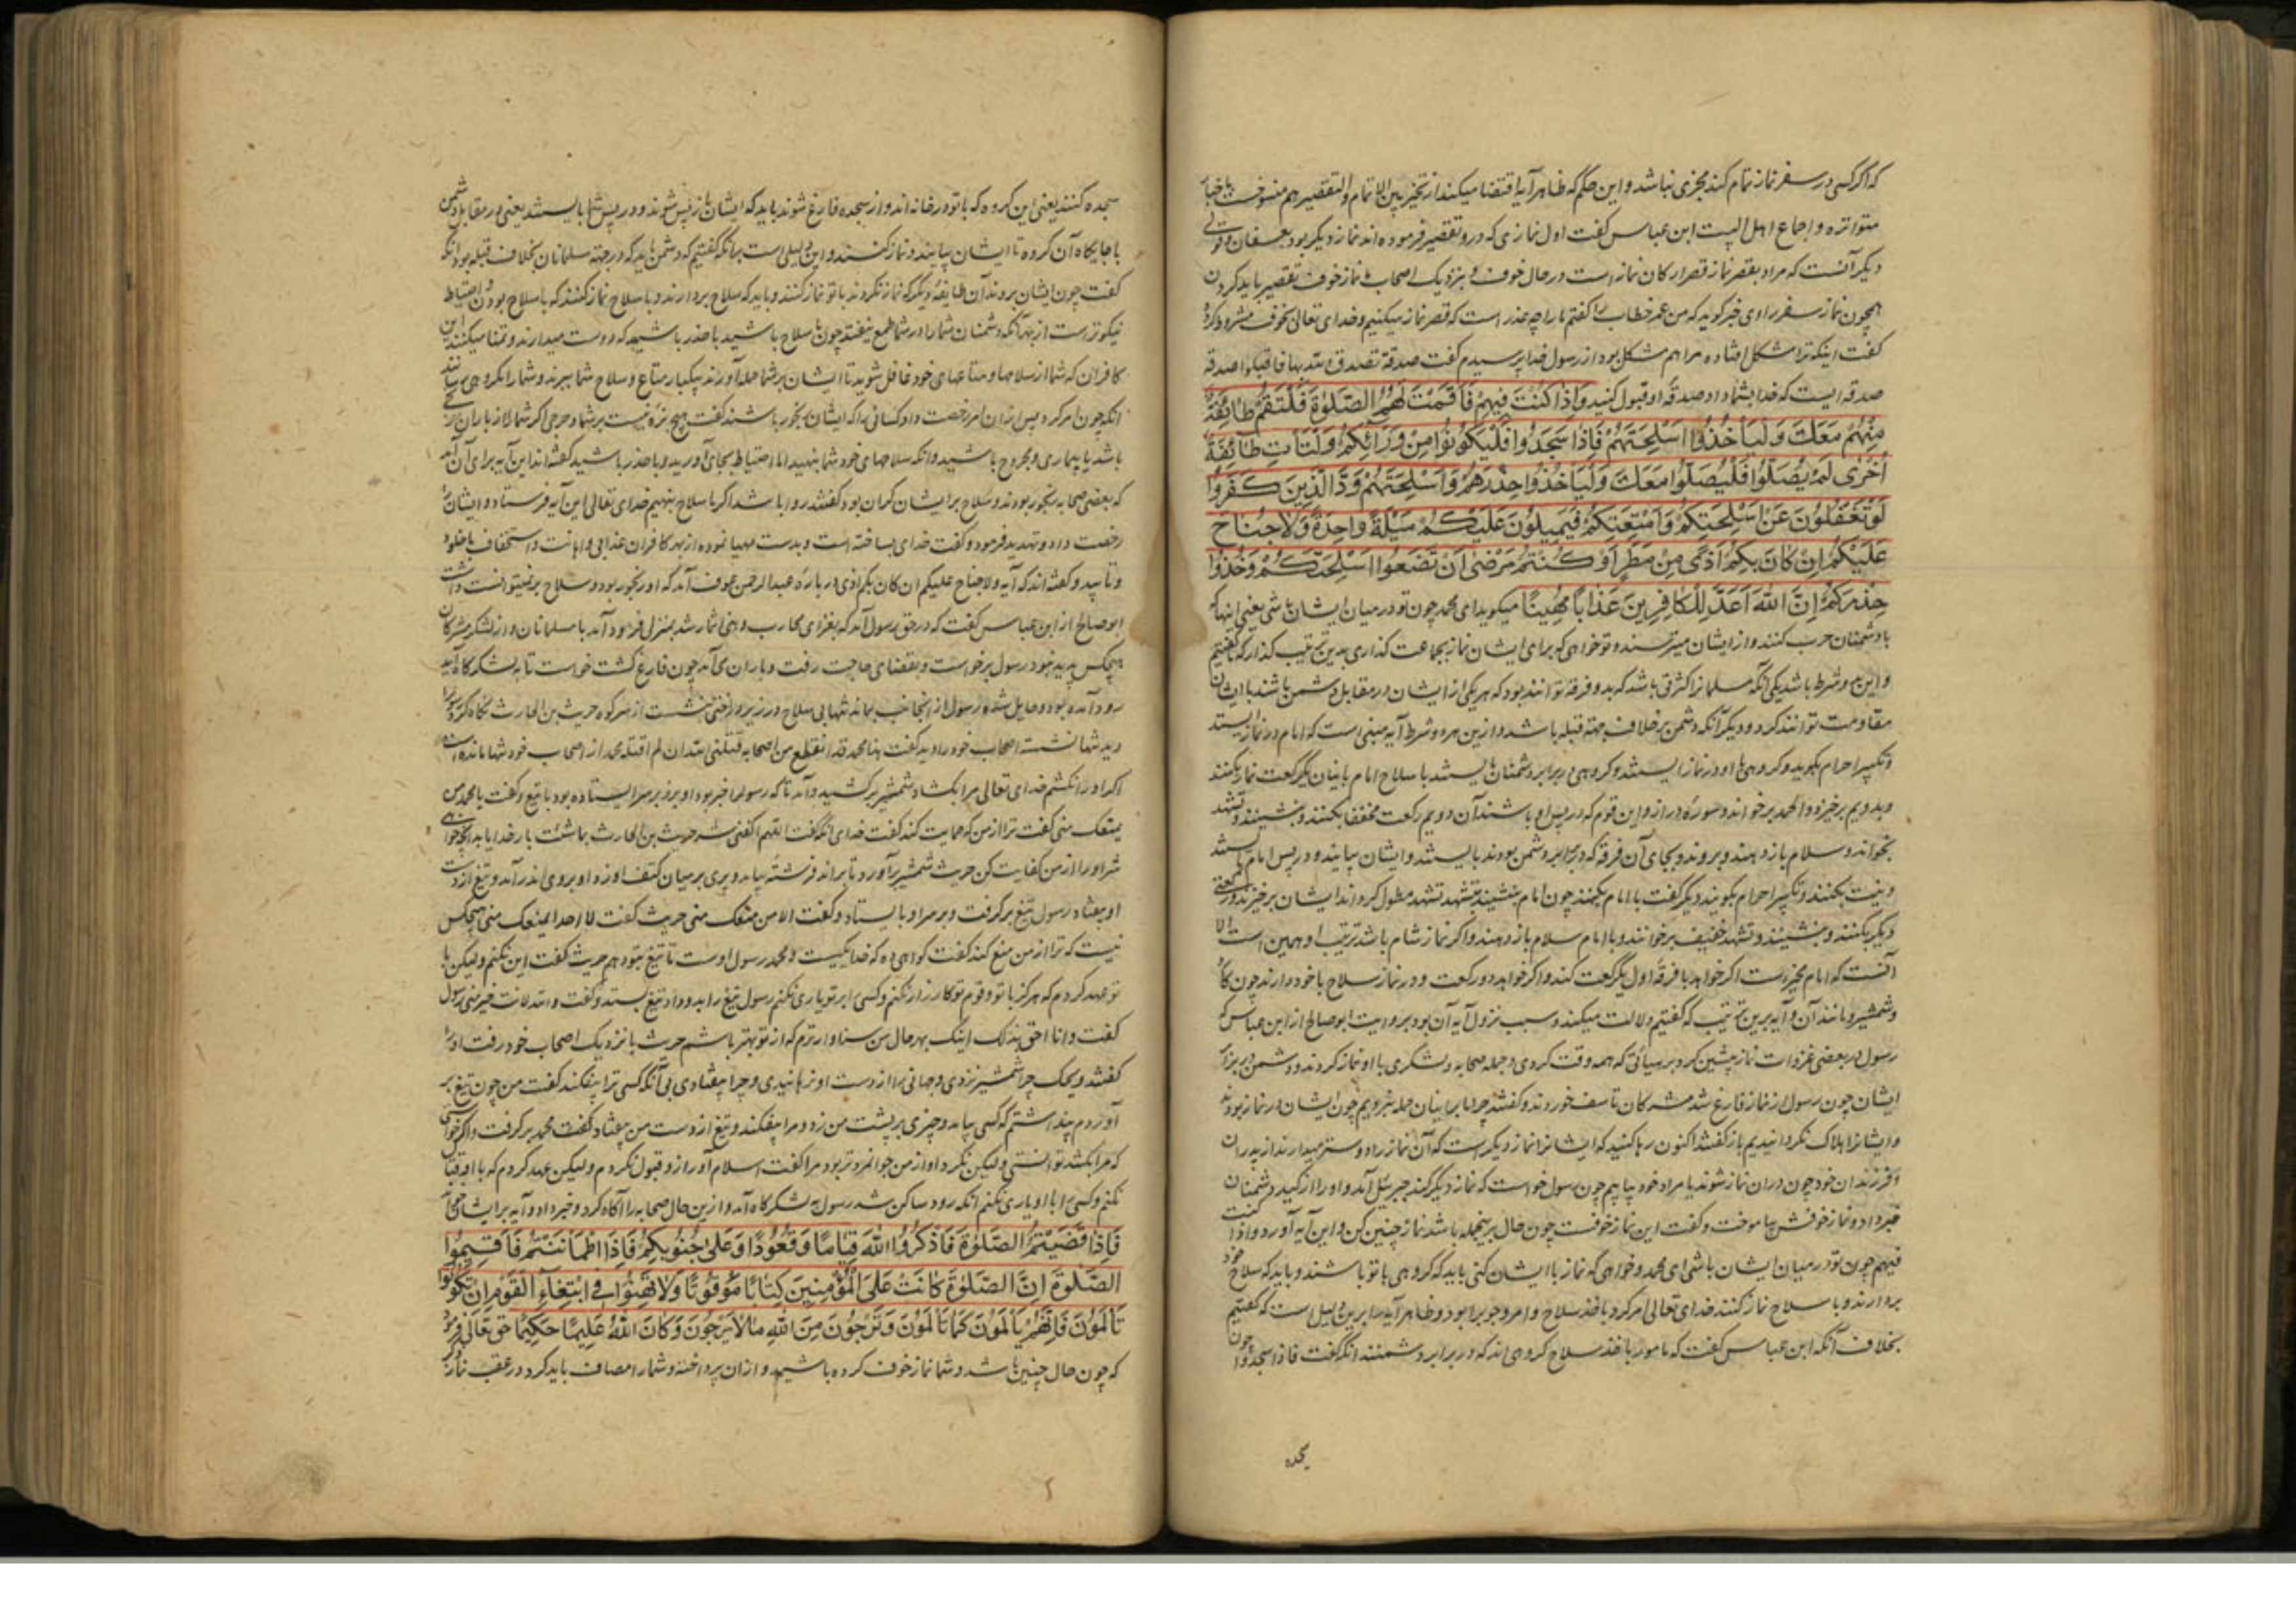 که اگر کسی در سفر نماز تمام کند مجزی نباشد و این حکم که ظاهر آیه اقتضا میکند از تخییر بین الاتمام والتقصیر هم منسوخست باخبار
متواتره و اجماع اهل البیت ابن عباس گفت اول نمازی که درو تقصیر فرموده اند نماز دیگر بود بعسفان و قولی
دیگر آنست که مراد بقصر نماز قصر ارکان نماز است در حال خوف و بنزدیک اصحاب ما نماز خوف تقصیر باید کردن
همچون نماز سفر راوی خبر گوید که من عمر خطاب را گفتم ما را چه عذر است که قصر نماز میکنیم و خدای تعالی بخوف مشروط کرد
گفت اینکه ترا مشکل افتاده مرا هم مشکل بود از رسول خدا پرسیدم گفت صدقة تصدق الله بها فاقبلوا صدقة
صدقه ایست که خدا بشما داد صدقه او قبول کنید وَاِذَا كُنْتَ فِيهِمْ فَاَقَمْتَ لَهُمُ الصَّلٰوةَ فَلْتَقُمْ طَائِفَةٌ
مِنْهُمْ مَعَكَ وَلْيَأْخُذُوا اَسْلِحَتَهُمْ فَاِذَا سَجَدُوا فَلْيَكُونُوا مِنْ وَرَائِكُمْ وَلْتَأْتِ طَائِفَةٌ
اُخْرٰى لَمْ يُصَلُّوا فَلْيُصَلُّوا مَعَكَ وَلْيَأْخُذُوا حِذْرَهُمْ وَاَسْلِحَتَهُمْ وَدَّ الَّذِينَ كَفَرُوا
لَوْ تَغْفُلُونَ عَنْ اَسْلِحَتِكُمْ وَاَمْتِعَتِكُمْ فَيَمِيلُونَ عَلَيْكُمْ مَيْلَةً وَاحِدَةً وَلَا جُنَاحَ
عَلَيْكُمْ اِنْ كَانَ بِكُمْ اَذًى مِنْ مَطَرٍ اَوْ كُنْتُمْ مَرْضٰى اَنْ تَضَعُوا اَسْلِحَتَكُمْ وَخُذُوا
حِذْرَكُمْ اِنَّ اللّٰهَ اَعَدَّ لِلْكَافِرِينَ عَذَابًا مُهِينًا میگوید ای محمد چون تو در میان ایشان باشی یعنی اینها که
با دشمنان حرب کنند و از ایشان میترسند و تو خواهی که برای ایشان نماز بجماعت گذاری بدین ترتیب گذار که گفتیم
و این دو شرط باشد یکی آنکه مسلمانرا کثرتی باشد که بدو فرقه توانند بود که هر یکی از ایشان در مقابل دشمن باشند با ایشان
مقاومت توانند کرد و دیگر آنکه دشمن بر خلاف جهت قبله باشد و ازین هر دو شرط آیه مبنی است که امام در نماز ایستد
و تکبیر احرام بگوید و گروهی با او در نماز ایستند و گروهی در برابر دشمنان بایستند با سلاح امام باینان یک رکعت نماز بکند
و بدویم برخیزد و الحمد برخواند و سوره دراز و این قوم که در پس او باشند آن دویم رکعت مخففا بکنند و بنشینند و تشهد
بخوانند و سلام باز دهند و بروند و بجای آن فرقه که در برابر دشمن بودند بایستند و ایشان بیایند و در پس امام بایستند
و نیت بکنند و تکبیر احرام بگویند و یک رکعت با امام بکنند چون امام بنشیند بتشهد تشهد مطول کرداند ایشان برخیزند و رکعتی
دیگر بکنند و بنشینند و تشهد خفیف برخوانند و با امام سلام باز دهند و اگر نماز شام باشد ترتیب او همین است الا
آنست که امام مخیر است اگر خواهد با فرقه اول یک رکعت کند و اگر خواهد دو رکعت و در نماز سلاح با خود دارند چون
و شمشیر و مانند آن و آیه برین ترتیب که گفتیم دلالت میکند و سبب نزول آیه آن بود بروایت ابو صالح از ابن عباس که
رسول در بعضی غزوات نماز پیشین کرد بر هیاتی که همه وقت کردی و جمله صحابه و لشکری با او نماز کردند و دشمن در برابر
ایشان چون رسول از نماز فارغ شد مشرکان تاسف خوردند و گفتند چرا ما بر اینان حمله نبردیم چون ایشان در نماز بودند
و ایشانرا هلاک نکردانیدیم باز گفتند اکنون رها کنید که ایشانرا نماز دیگر است که آن نماز را دوستر میدارند از پدران
و فرزندان خود چون دران نماز شوند ما مراد خود بیابیم چون رسول خواست که نماز دیگر کند جبرئیل آمد و او را از کید دشمنان
خبر داد و نماز خوفش بیاموخت و گفت این نماز خوفست چون حال برینجمله باشد نماز چنین کن و این آیه آورد و اذا کنت
فیهم چون تو در میان ایشان باشی ای محمد و خواهی که نماز با ایشان کنی باید که گروهی با تو باشند و باید که سلاح خود
بردارند و با سلاح نماز کنند خدای تعالی امر کرد باخذ سلاح و امر وجوب را بود و ظاهر آیه را برین دلیل است که گفتیم
بخلاف آنکه ابن عباس گفت که مامور باخذ سلاح گروهی اند که در برابر دشمنند آنکه گفت فاذا سجدوا چون
سجده کنند یعنی این گروه که با تو در نماز اند و از سجده فارغ شوند باید که ایشان باز پس شوند و در پس شما بایستند یعنی در مقابل دشمن
با جایگاه آن گروه تا ایشان بیایند و نماز کنند و این دلیل است بر آنکه گفتیم که دشمن باید که در جهت مسلمانان بخلاف قبله بود آنکه
گفت چون ایشان بروند آن طایفه دیگر که نماز نکردند با تو نماز کنند و باید که سلاح بردارند و با سلاح نماز کنند که با سلاح بودن احتیاط
نیکوتر است از بهر آنکه دشمنان شما را در شما طمع نیفتد چون با سلاح باشید با حذر باشید که دوست میدارند و تمنا میکنند این
کافران که شما از سلاحها و متاعهای خود غافل شوید تا ایشان بر شما حمله آورند بیکبار متاع و سلاح شما ببرند و شما را مکروهی رسانند
آنکه چون امر کرد پس ازان امر رخصت داد کسانی را که ایشان رنجور باشند گفت هیچ بزه نیست بر شما و حرجی اگر شما را از باران رنجی
باشد یا بیماری و مجروح باشید و آنکه سلاحهای خود شما بنهید اما احتیاط بجای آورید و با حذر باشید گفته اند این آیه برای آن آمد
که بعضی صحابه رنجور بودند و سلاح بر ایشان گران بود گفتند روا باشد اگر ما سلاح بنهیم خدای تعالی این آیه فرستاد و ایشانرا
رخصت داد و تهدید فرمود و گفت خدای ساخته است و بدست مهیا نموده از بهر کافران عذابی و اهانت و استخفاف با خلود
و تأیید و گفته اند که آیه ولا جناح علیکم ان کان بکم اذی در باره عبدالرحمن عوف آمد که او رنجور بود و سلاح بر نمیتوانست داشت
ابو صالح از ابن عباس گفت که در حق رسول آمد که بغزای محارب و بنی انمار شد بمنزل فرود آمد با مسلمانان و از لشکر مشرکان
هیچکس پدید نبود رسول برخواست و بقضای حاجت رفت و باران می آمد چون فارغ گشت خواست تا بلشکرگاه آید
رود آمده بود و حایل شده رسول از آنجانب بماند تنها بی سلاح در زیر درختی بنشست از سر کوه حریث بن الحارث نگاه کرد
دید تنها نشسته اصحاب خود را دید گفت هذا محمد قد انقطع من اصحابه قتلنی الله ان لم اقتله محمد از اصحاب خود تنها مانده است
اگر او را نکشم خدای تعالی مرا بکشاد شمشیر برکشید و آمد تا که رسول را خبر بود او برفراز سر ایستاده بود با تیغ و گفت یا محمد من
یمنعک منی گفت ترا از من که حمایت کند گفت خدای آنکه گفت اللهم اکفنی شر حریث بن الحارث بما شئت بار خدایا بدانچه خواهی
شر او را از من کفایت کن حریث شمشیر برآورد تا براند فرشته بیامد و پری بر میان کتف او زد او بروی اندر آمد و تیغ از دست
او بیفتاد رسول تیغ برگرفت و بر سر او بایستاد و گفت الا من منعک منی حریث گفت لا احد یمنعک منی هیچکس
نیست که ترا از من منع کند گفت گواهی ده که خدا یکیست و محمد رسول اوست تا تیغ بتو دهم حریث گفت این نکنم ولیکن با
تو عهد کردم که هرگز با تو و قوم تو کارزار نکنم و کسی را بر تو یاری نکنم رسول تیغ را بدو داد تیغ بستد و گفت والله لانت خیر منی رسول
گفت وانا احق بذلک اینک بهر حال من سزاوارترم که از تو بهتر باشم حریث با نزدیک اصحاب خود رفت او را
گفتند ویحک چرا شمشیر نزدی و جهانی را از دست او نرهانیدی و چرا بیفتادی بی آنکه کسی ترا بیفکند گفت من چون تیغ بر
آوردم پنداشتم که کسی بیامد و چیزی بر پشت من زد و مرا بیفکند و تیغ از دست من بیفتاد گفت محمد برگرفت و اگر خواستی
که مرا بکشد توانستی ولیکن نکرد او از من جوانمردتر بود مرا گفت اسلام آور ازو قبول نکردم ولیکن عهد کردم که با او قتال
نکنم و کسی را با او یاری نکنم آنکه رود ساکن شد رسول بلشکرگاه آمد و ازین حال صحابه را آگاه کرد و خبر داد و آیه بر ایشان خواند
فَاِذَا قَضَيْتُمُ الصَّلٰوةَ فَاذْكُرُوا اللّٰهَ قِيَامًا وَقُعُودًا وَعَلٰى جُنُوبِكُمْ فَاِذَا اطْمَأْنَنْتُمْ فَاَقِيمُوا
الصَّلٰوةَ اِنَّ الصَّلٰوةَ كَانَتْ عَلَى الْمُؤْمِنِينَ كِتَابًا مَوْقُوتًا وَلَا تَهِنُوا فِي ابْتِغَاءِ الْقَوْمِ اِنْ تَكُونُوا
تَأْلَمُونَ فَاِنَّهُمْ يَأْلَمُونَ كَمَا تَأْلَمُونَ وَتَرْجُونَ مِنَ اللّٰهِ مَا لَا يَرْجُونَ وَكَانَ اللّٰهُ عَلِيمًا حَكِيمًا حق تعالی فرمود
که چون حال چنین باشد و شما نماز خوف کرده باشید و ازان پرداخته و شما را مصاف باید کرد در عقب نماز